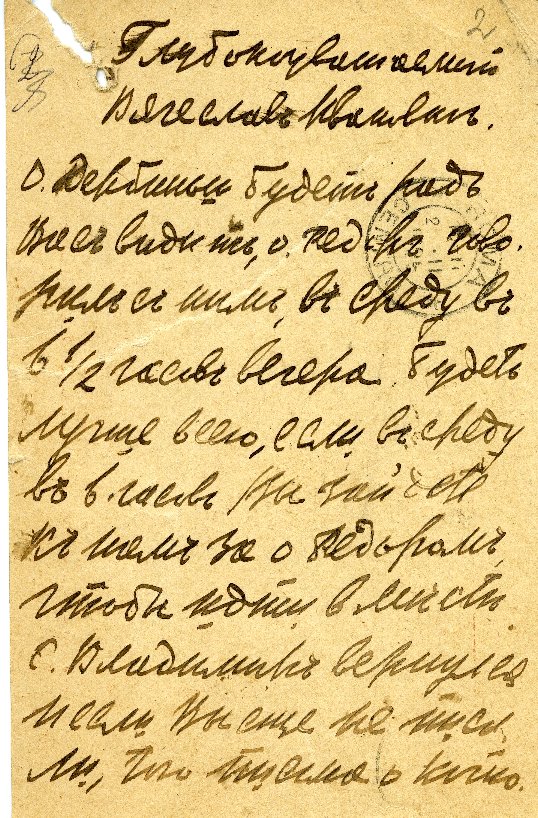 2
Глубокоуважаемый
Вячеславъ Ивановичъ.
О. Дербиньи будетъ радъ
Васъ видить, о. Федоръ гово-
рилъ съ нимъ, въ среду въ
6 1/2 часовъ вечера. Будетъ
лучше всего, если въ среду
въ 6 часовъ Вы зайдете
къ намъ за о Федоромъ,
чтобы идти вместе.
С. Владимиръ вернулся
и если Вы еще не писа-
ли, то письма о кото-
ROMA